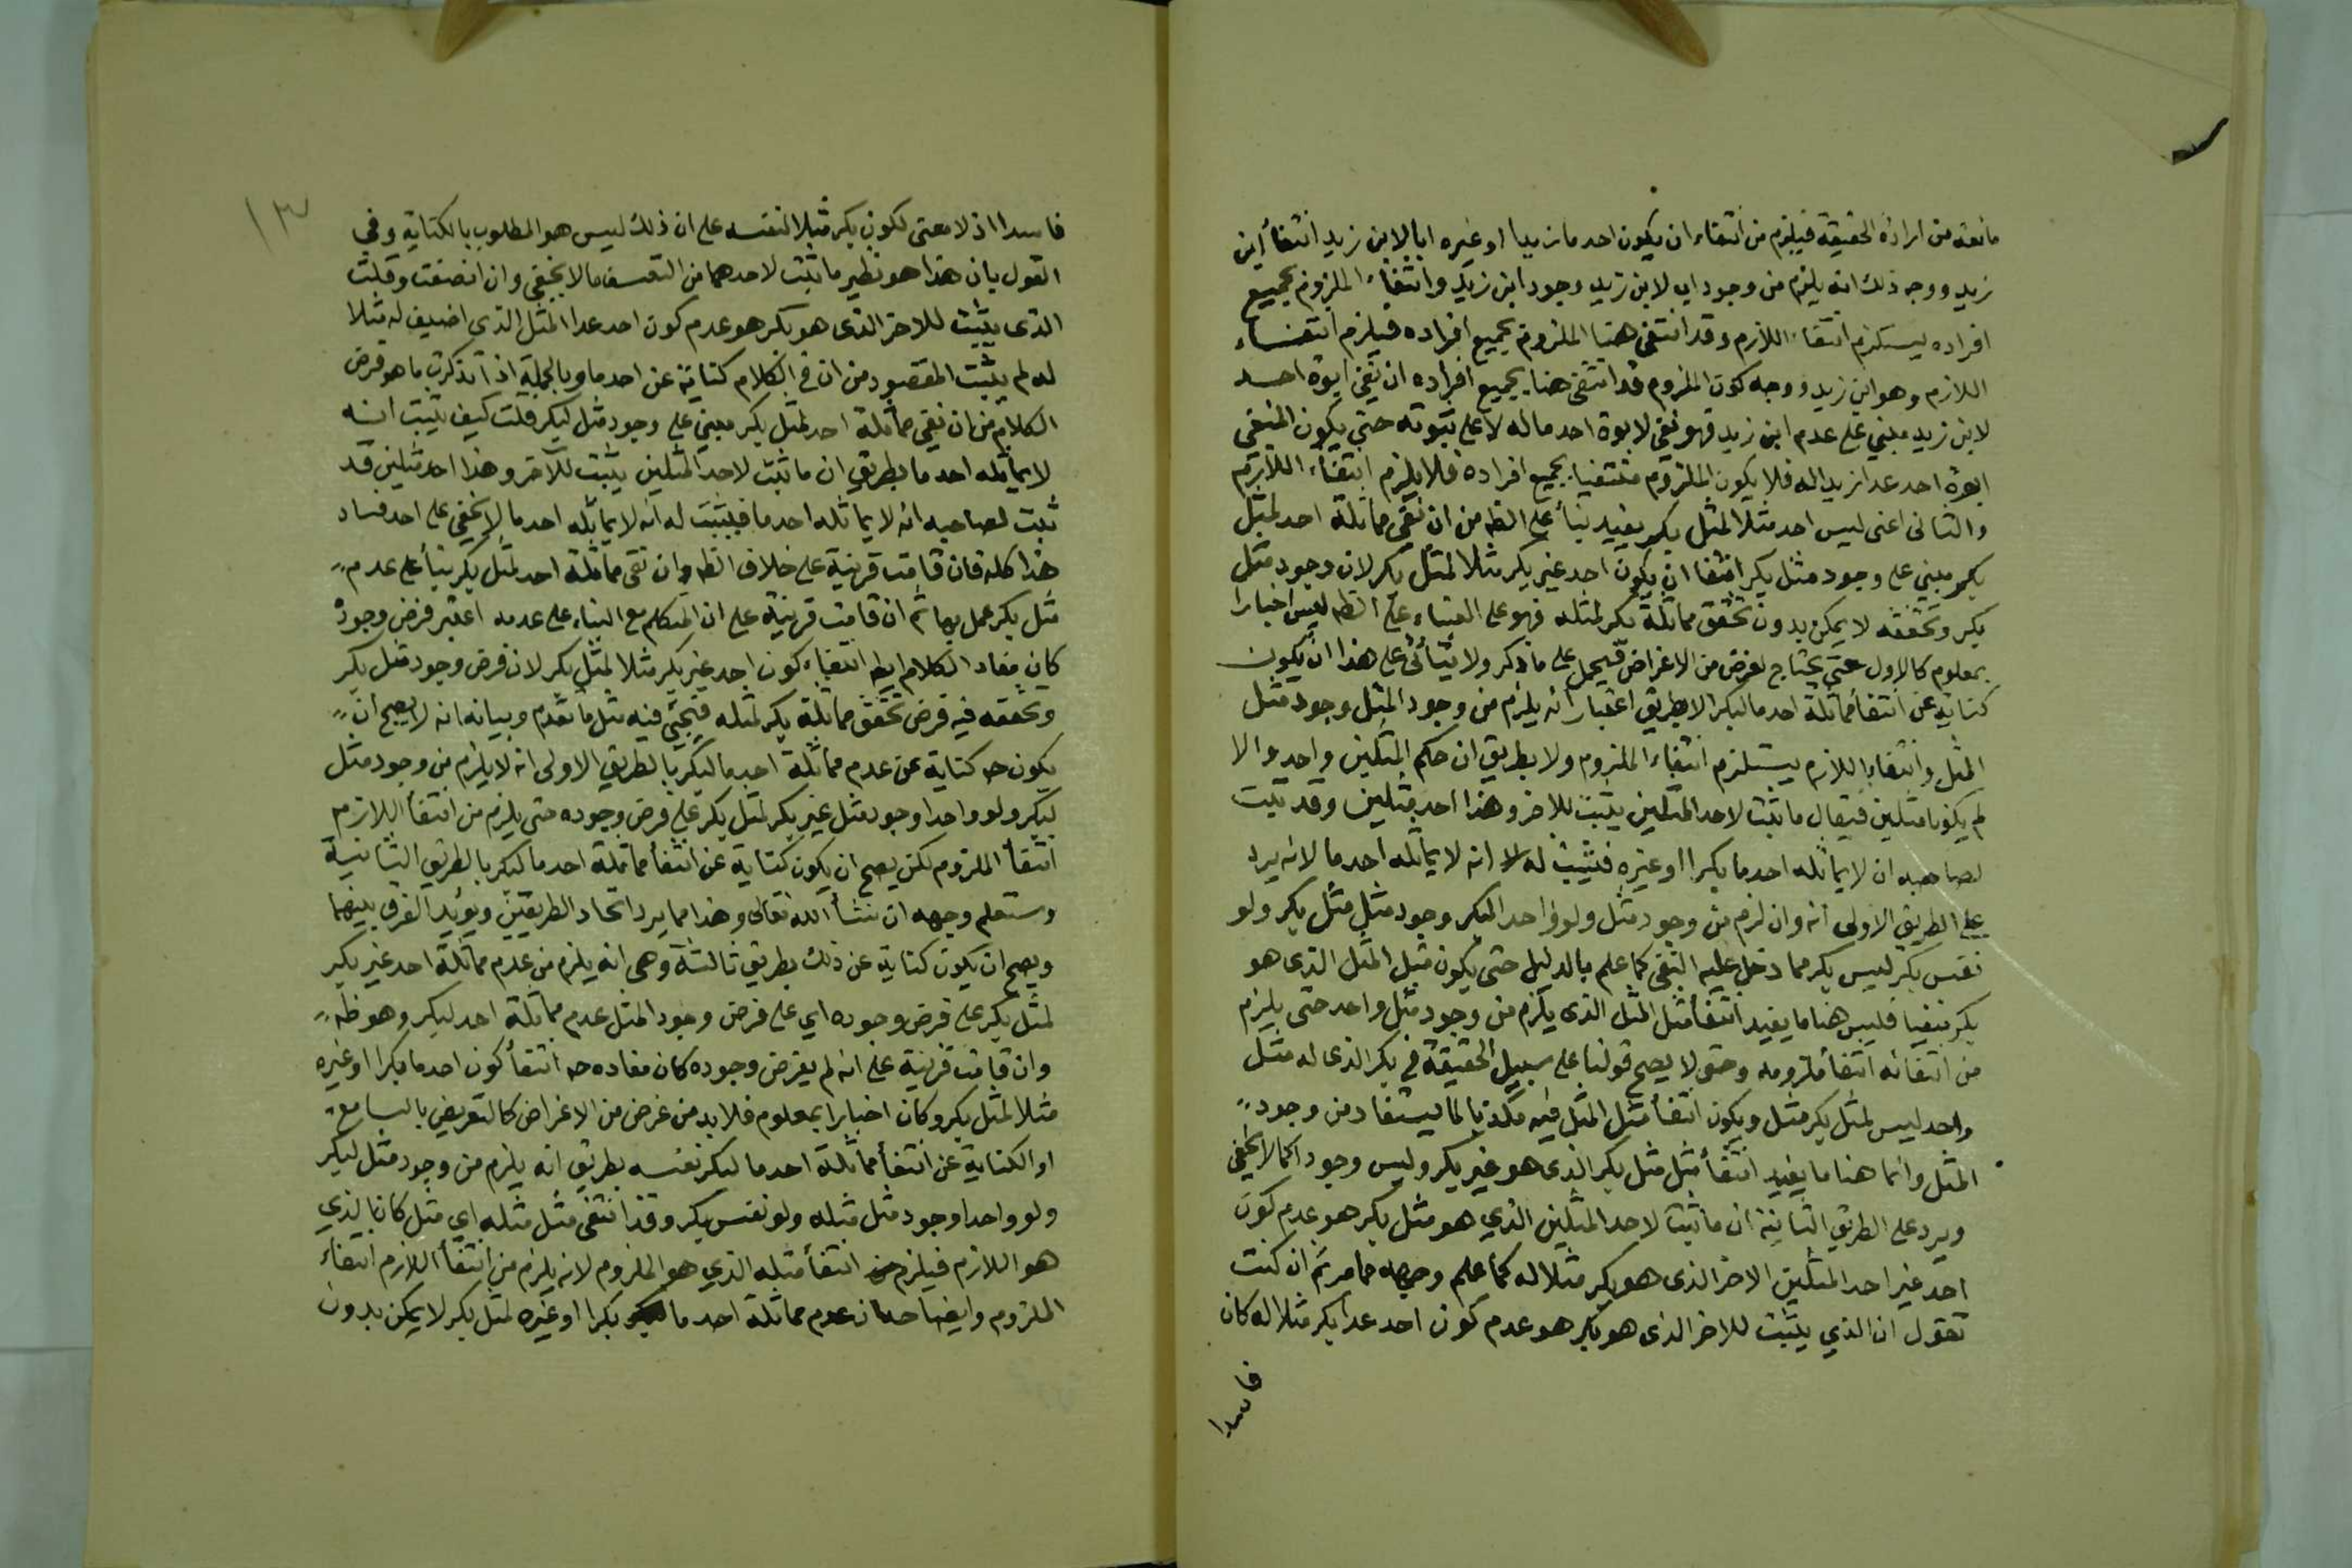 مانعة من ارادة الحقيقة فيلزم من انتفاء ان يكون احد ما زيدا او غيره ابا لابن زيد انتفأ ابن
زيد ووجه ذلك انه يلزم من وجود اب لابن زيد وجود ابن زيد وانتفاء الملزوم بجميع
افراده يستلزم انتفاء اللازم وقد انتفى هنا الملزوم بجميع افراده فيلزم انتفاء
اللازم وهو ابن زيد ووجه كون الملزوم قد انتفى هنا بجميع افراده ان نفي ابوة احد
لابن زيد مبني على عدم ابن زيد فهو نفي لابوة احد ما له لا على ثبوته حتى يكون المنفي
ابوة احد عدا زيد له فلا يكون الملزوم منتفيا بجميع افراده فلا يلزم انتفاء اللازم
والثانى اعنى ليس احد مثلا لمثل بكر يفيد بنأ على الظ من ان نفي مماثلة احد لمثل
بكر مبني على وجود مثل بكر انتفا ان يكون احد غير بكر مثلا لمثل بكر لان وجود مثل
بكر وتحققه لا يمكن بدون تحقق مماثلة بكر لمثله فهو على البناء على الظ ليس اخبارا
بمعلوم كالاول حتى يحتاج لغرض من الاغراض فيحمل على ما ذكر ولا يتأتى على هذا ان يكون
كناية عن انتفأ مماثلة احد ما لبكر لا بطريق اعتبار انه يلزم من وجود المثل وجود مثل
المثل وانتفاء اللازم يستلزم انتفاء الملزوم ولا بطريق ان حكم المثلين واحد والا
لم يكونا مثلين فيقال ما ثبت لاحد المثلين يثبت للاخر وهذا احد مثلين وقد ثبت
لصاحبه ان لا يماثله احد ما بكرا او غيره فيثبت له انه لا يماثله احد ما لانه يرد
على الطريق الاولى انه وان لزم من وجود مثل ولو واحد لبكر وجود مثل مثل بكر ولو
نفس بكر ليس بكر مما دخل عليه النفي كما علم بالدليل حتى يكون مثل المثل الذى هو
بكر منفيا فليس هنا ما يفيد انتفأ مثل المثل الذى يلزم من وجود مثل واحد حتى يلزم
من انتفائه انتفأ ملزومه وحتى لا يصح قولنا على سبيل الحقيقة في بكر الذى له مثل
واحد ليس لمثل بكر مثل ويكون انتفأ مثل المثل فيه مكذبا لما يستفاد من وجود
المثل وانما هنا ما يفيد انتفأ مثل مثل بكر الذى هو غير بكر وليس وجود كما لا يخفى
ويرد على الطريق الثانية ان ما ثبت لاحد المثلين الذي هو مثل بكر هو عدم كون
احد غير احد المثلين الاخر الذى هو بكر مثلا له كما علم وجهه مما مر ثم ان كنت
تقول ان الذي يثبت للاخر الذى هو بكر هو عدم كون احد عدا بكر مثلا له كان
فاسدا
١٣
فاسدا اذ لا معنى لكون بكر مثلا لنفسه على ان ذلك ليس هو المطلوب بالكناية وفي
القول بان هذا هو نظير ما ثبت لاحدهما من التعسف ما لا يخفى وان انصفت وقلت
الذى يثبت للاخر الذى هو بكر هو عدم كون احد عدا المثل الذى اضيف له مثلا
له لم يثبت المقصود من ان في الكلام كناية عن احد ما وبالجملة اذا تذكرت ما هو فرض
الكلام من ان نفي مماثلة احد لمثل بكر مبني على وجود مثل لبكر قلت كيف يثبت انه
لا يماثله احد ما بطريق ان ما ثبت لاحد المثلين يثبت للآخر وهذا احد مثلين قد
ثبت لصاحبه انه لا يماثله احد ما فيثبت له انه لا يماثله احد ما لا يخفى على احد فساد
هذا كله فان قامت قرينة على خلاف الظ وان نفى مماثلة احد لمثل بكر بنأ على عدم
مثل بكر عمل بها ثم ان قامت قرينة على ان المتكلم مع البناء على عدمه اعتبر فرض وجود
كان مفاد الكلام ايض انتفاء كون احد غير بكر مثلا لمثل بكر لان فرض وجود مثل بكر
وتحققه فيه فرض تحقق مماثلة بكر لمثله فيجئ فيه مثل ما تقدم وبيانه انه لا يصح ان
يكون ح كناية عن عدم مماثلة احد ما لبكر بالطريق الاولى انه لا يلزم من وجود مثل
لبكر ولو واحدا وجود مثل غير بكر لمثل بكر على فرض وجوده حتى يلزم من انتفأ اللازم
انتفأ الملزوم لكن يصح ان يكون كناية عن انتفأ مماثلة احد ما لبكر بالطريق الثانية
وستعلم وجهه ان شأ الله تعالى وهذا مما يرد اتحاد الطريقين ويؤيد الفرق بينهما
ويصح ان يكون كناية عن ذلك بطريق ثالثة وهى انه يلزم من عدم مماثلة احد غير بكر
لمثل بكر على فرض وجوده اي على فرض وجود المثل عدم مماثلة احد لبكر وهو ظ
وان قامت قرينة على انه لم يفرض وجوده كان مفاده ح انتفأ كون احد ما بكرا او غيره
مثلا لمثل بكر وكان اخبارا بمعلوم فلا بد من غرض من الاغراض كالتعريض بالسامع
او الكناية عن انتفأ مماثلة احد ما لبكر نفسه بطريق انه يلزم من وجود مثل لبكر
ولو واحدا وجود مثل مثله ولو نفس بكر وقد انتفى مثل مثله اي مثل كان الذي
هو اللازم فيلزم من انتفأ مثله الذي هو الملزوم لانه يلزم من انتفأ اللازم انتفاء
الملزوم وايضاحه ان عدم مماثلة احد ما بكرا او غيره لمثل بكر لا يمكن بدون